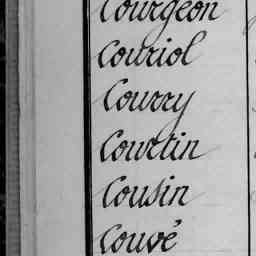 Courgeon
Couriol
Courry
Courtin
Cousin
Couvé